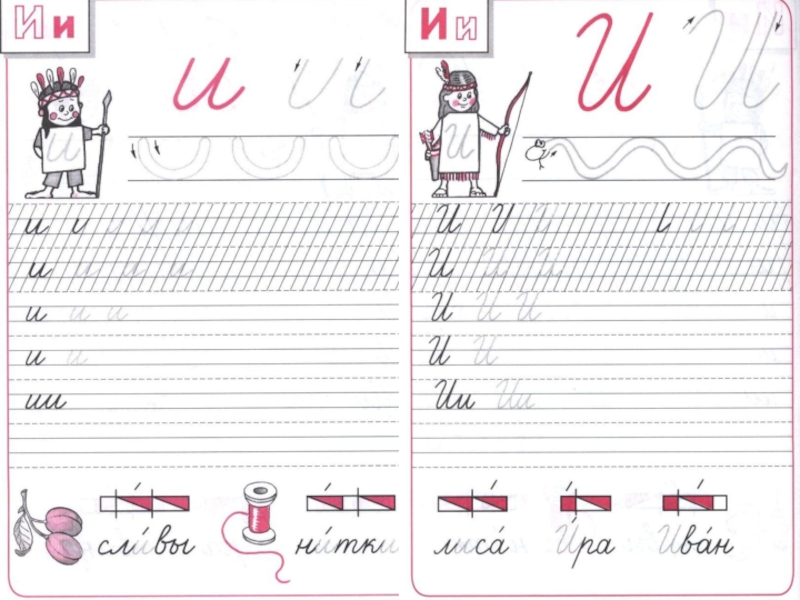 И и
и и
и
и и и и и
и и и и
и и и
и и
ии
сли́вы ни́тки
И и
И И
И
И
И И И
И И И
И И И
И И
Ии Ии
лиса́ И́ра Ива́н